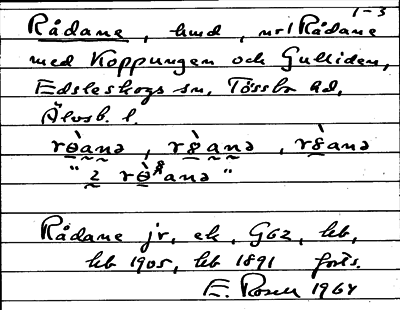 1-3
Rådane, hmd, nr 1 Rådane
med Koppungen och Gulliden,
Edsleskogs sn, Tössbo hd,
Älvsb. l.
rɵ̀anə, rg̀anə, rg̀anə
"2 rɵ̀anə"
Rådane jr, ek, G62, hb,
hb 1905, hb 1891 forts.
E. Rosell 1964